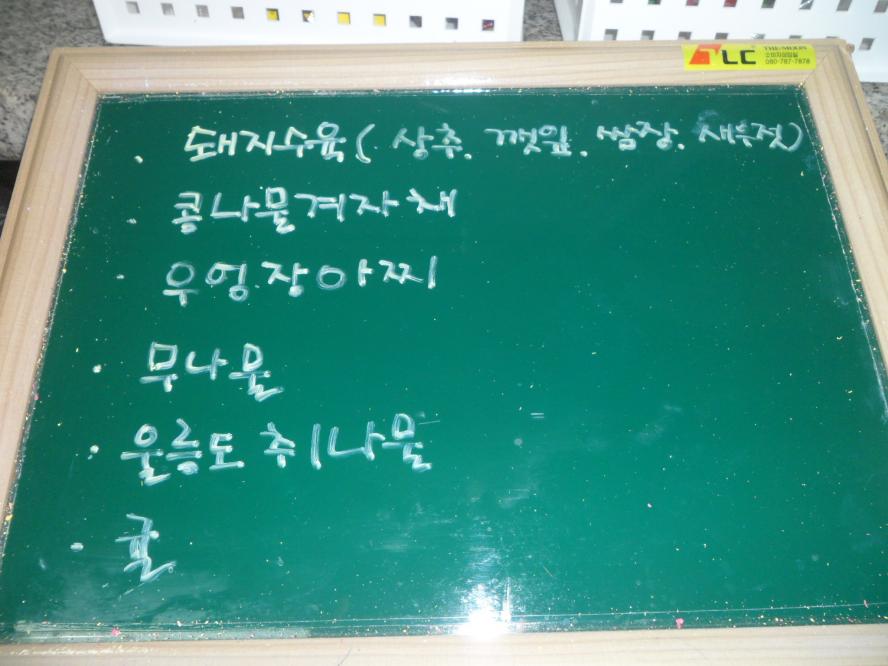 LC THE MOON
소비자상담실
080-787-7878
· 돼지수육(상추. 깻잎. 쌈장. 새우젓)
· 콩나물겨자채
· 우엉장아찌
· 무나물
· 울릉도취나물
· 굴